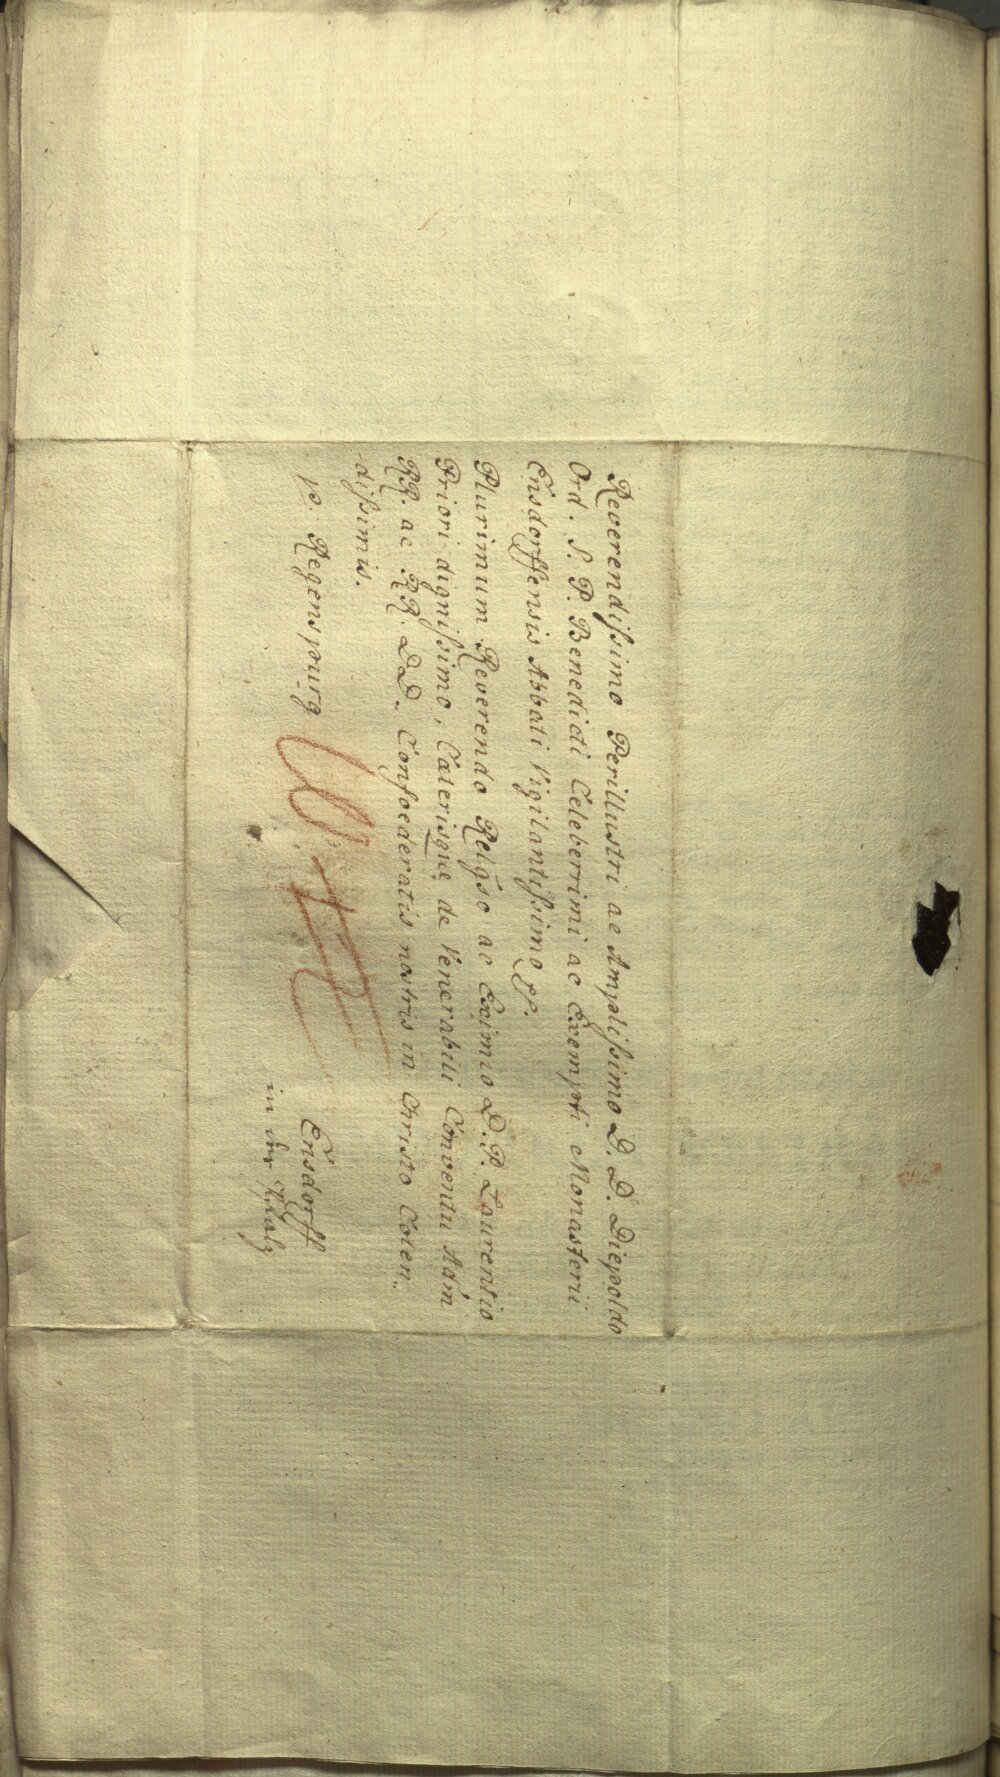 Reverendissimo Perillustri ac Amplissimo D. D. Diepoldo
Ord. S. P. Benedicti Celeberrimi ac Exempti Monasterii
Ensdorffensis Abbati Vigilantissimo pp.
Plurimum Reverendo Relgso ac Eximio D. P. Laurentio
Priori dignissimo, Caterisque de Venerabili Conventu Adm
RR. ac RR. DD. Confoederatis nostris in Christo Colen-
dissimis.
po. Regenspurg
Ensdorff
in der Pfalz